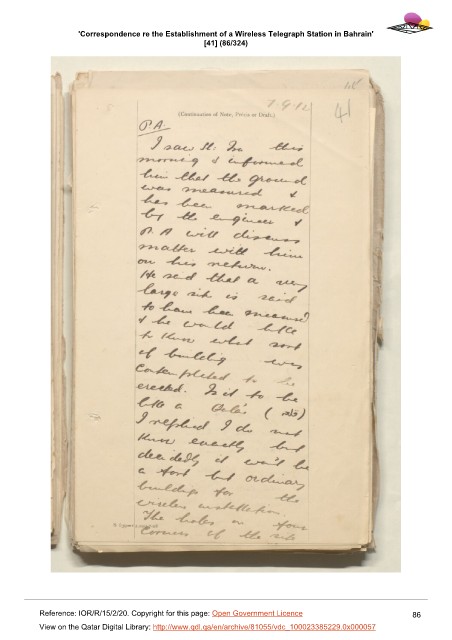 'Correspondence re the Establishment of a Wireless Telegraph Station in Bahrain'
[41] (86/324)
7 9 12
41
(Continuation of Note, Precis or Draft.)
P.A.
I saw Sh: in this
morning & informed
him that the ground
was measured &
has been marked
by the engineer &
P.A will discuss
matter with him
on his return.
He said that a very
large site is said
to have been measured
& he would like
to know what sort
of building was
contemplated to be
erected. Is it to be
like a
I replied I do not
know exactly but
decidedly it won't be
a fort but ordinary
buildings for the
wireless installation.
The holes on four
corners of the site
Reference: IOR/R/15/2/20. Copyright for this page: Open Government Licence
View on the Qatar Digital Library: http://www.qdl.qa/en/archive/81055/vdc_100023385229.0x000057
86